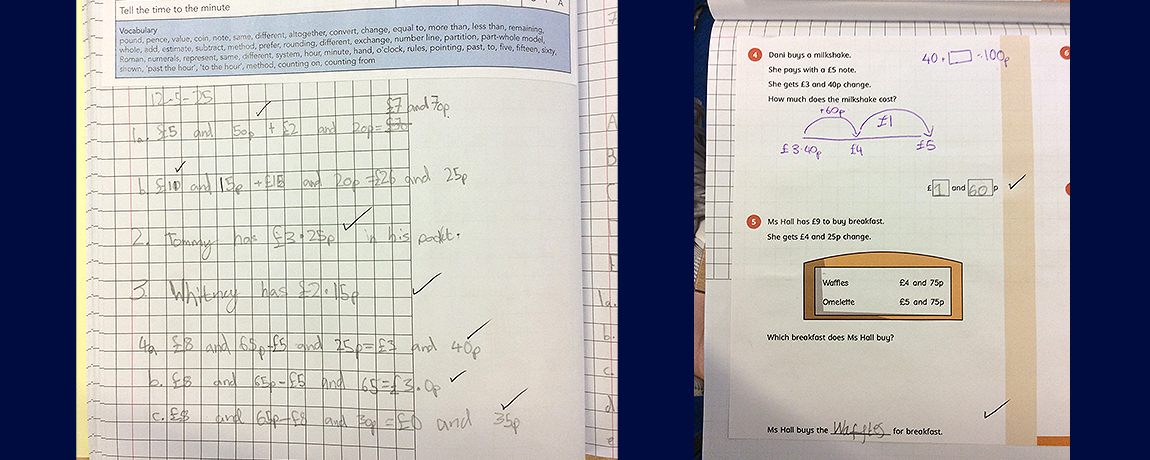 Tell the time to the minute
Vocabulary
pound, pence, value, coin, note, same, different, altogether, convert, change, equal to, more than, less than, remaining,
whole, add, estimate, subtract, method, prefer, rounding, different, exchange, number line, partition, part-whole model,
Roman, numerals, represent, same, different, system, hour, minute, hand, o'clock, rules, pointing, past, to, five, fifteen, sixty,
shown, 'past the hour', 'to the hour', method, counting on, counting from
12-5-25
£7 and 70p.
1a. £5 and 50p + £2 and 20p =
b. £10 and 15p + £16 and 20p = £26 and 25p
2. Tommy has £3.25p in his pocket.
3. Whitney has £2.15p
4a £8 and 65p-£5 and 25p=£3 and 40p
b. £8 and 65p-£5 and 65=£3.0p
c. £8 and 65p-£8 and 30p=£0 and 35p
4 Dani buys a milkshake.
40+ =100p
She pays with a £5 note.
She gets £3 and 40p change.
How much does the milkshake cost?
+60p £1
£3.40p £4 £5
£1 and 60p
5 Ms Hall has £9 to buy breakfast.
She gets £4 and 25p change.
Waffles £4 and 75p
Omelette £5 and 75p
Which breakfast does Ms Hall buy?
Ms Hall buys the Waffles for breakfast.
6
A
B
C
1a.
b.
c.
d
e